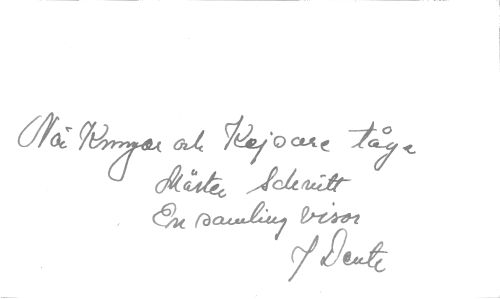 När Kungar och Kejsare tåga
Mäster Schmitt
En samling visor
J Dente